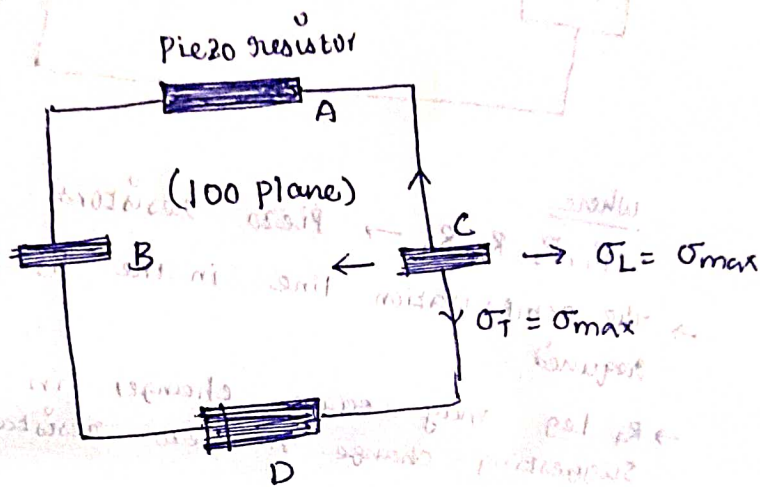 Piezo resistor
A
(100 plane)
B
C
→ σL = σmax
σT = σmax
D